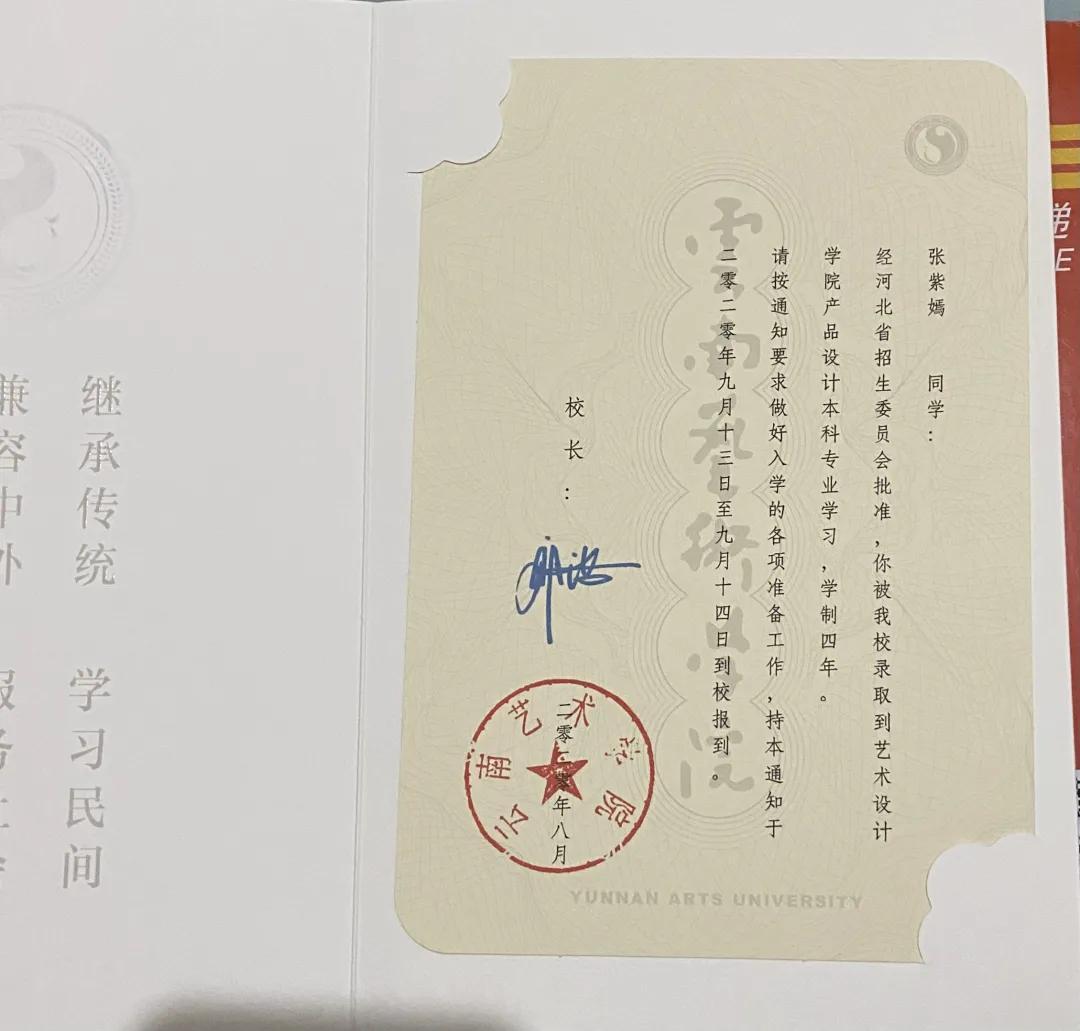 张紫嫣 同学：
经河北省招生委员会批准，你被我校录取到艺术设计
学院产品设计本科专业学习，学制四年。
请按通知要求做好入学的各项准备工作，持本通知于
二零二零年九月十三日至九月十四日到校报到。
校长：
二零二零年八月
云南艺术学院
雲南藝術學院
YUNNAN ARTS UNIVERSITY
继承传统 学习民间
兼容中外
递
E